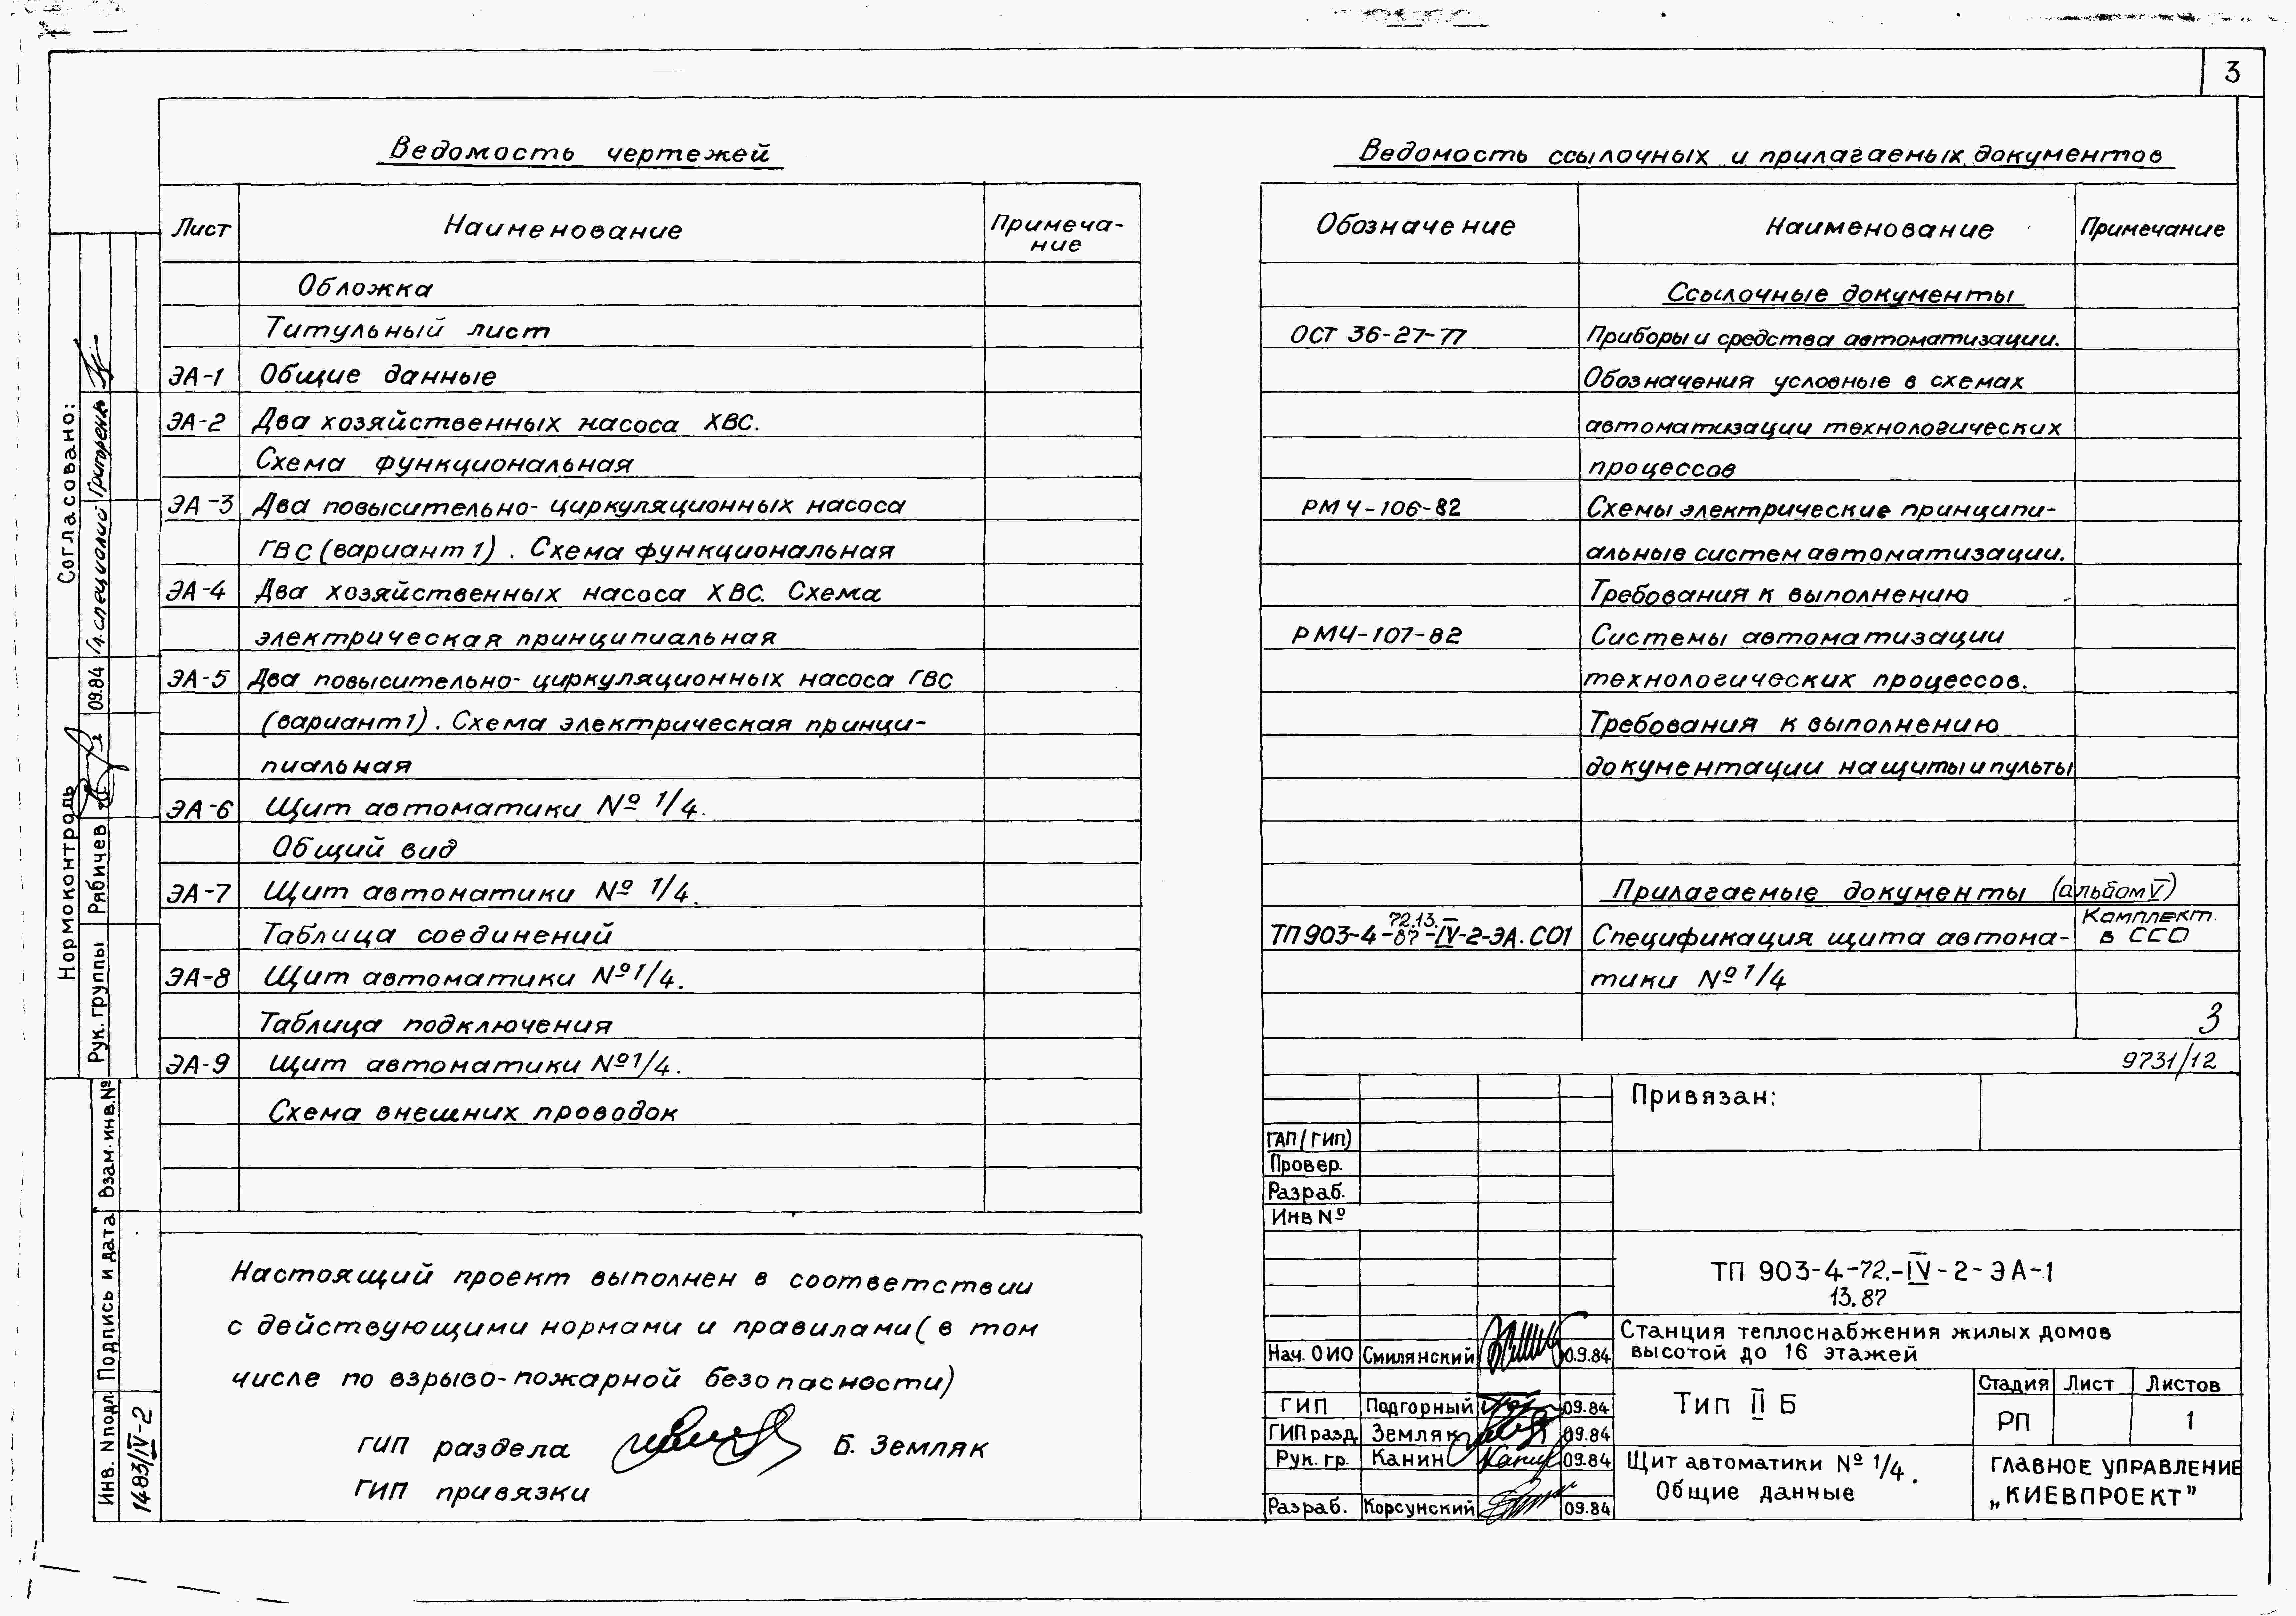 3
Ведомость чертежей
Лист Наименование Примеча-
ние
Обложка
Титульный лист
ЭА-1 Общие данные
ЭА-2 Два хозяйственных насоса ХВС.
Схема функциональная
ЭА-3 Два повысительно-циркуляционных насоса
ГВС (вариант 1). Схема функциональная
ЭА-4 Два хозяйственных насоса ХВС. Схема
электрическая принципиальная
ЭА-5 Два повысительно-циркуляционных насоса ГВС
(вариант 1). Схема электрическая принци-
пиальная
ЭА-6 Щит автоматики № 1/4.
Общий вид
ЭА-7 Щит автоматики № 1/4.
Таблица соединений
ЭА-8 Щит автоматики № 1/4.
Таблица подключения
ЭА-9 Щит автоматики № 1/4.
Схема внешних проводок
Настоящий проект выполнен в соответствии
с действующими нормами и правилами (в том
числе по взрыво-пожарной безопасности)
ГИП раздела Б. Земляк
ГИП привязки
Ведомость ссылочных и прилагаемых документов
Обозначение Наименование Примечание
Ссылочные документы
ОСТ 36-27-77 Приборы и средства автоматизации.
Обозначения условные в схемах
автоматизации технологических
процессов
РМ4-106-82 Схемы электрические принципи-
альные систем автоматизации.
Требования к выполнению
РМ4-107-82 Системы автоматизации
технологических процессов.
Требования к выполнению
документации на щиты и пульты
Прилагаемые документы (альбом V)
ТП 903-4-72.13.87-IV-2-ЭА.СО1 Спецификация щита автома- Комплект.
в ССО
тики № 1/4
3
9731/12
Привязан:
ГАП (ГИП)
Провер.
Разраб.
Инв №
ТП 903-4-72.-IV-2-ЭА-1
13.87
Станция теплоснабжения жилых домов
высотой до 16 этажей
Нач. ОИО Смилянский 09.84
ГИП Подгорный 09.84
ГИП разд. Земляк 09.84
Рук. гр. Канин 09.84
Разраб. Корсунский 09.84
Тип II Б
Стадия Лист Листов
РП 1
Щит автоматики № 1/4.
Общие данные
ГЛАВНОЕ УПРАВЛЕНИЕ
„КИЕВПРОЕКТ"
Согласовано:
Гл. специалист Григоренко
Нормоконтроль
Рук. группы Рябичев 09.84
Взам. инв. №
Подпись и дата
Инв. N подл. 1483/IV-2